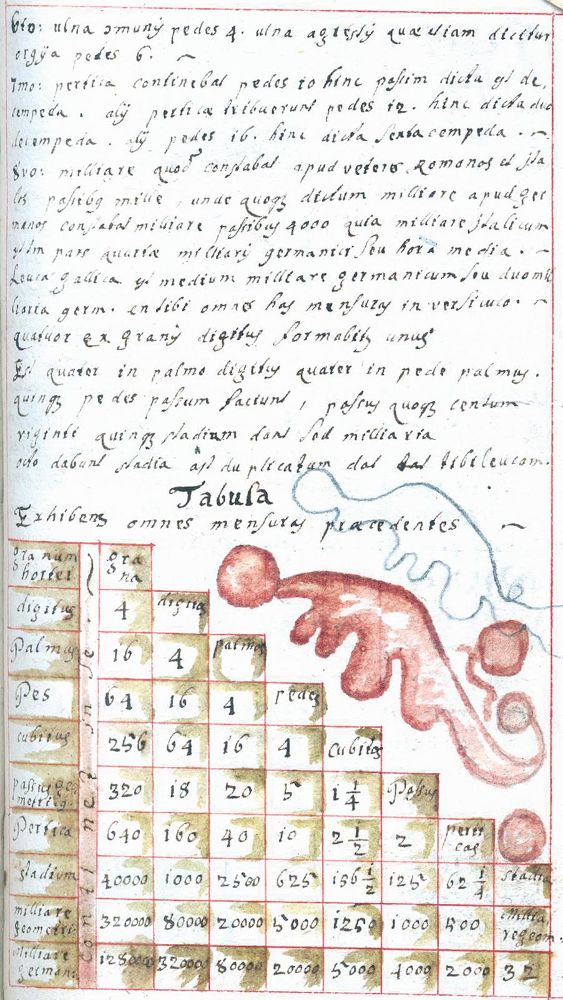 6to: ulna comunis pedes 4. ulna agrestis quae etiam dicitur
orgya pedes 6.
7mo: pertica continebat pedes 10 hinc passim dicta est de,
cempeda. alij perticae tribuerunt pedes 12. hinc dicta duo
decempeda. alij pedes 16. hinc dicta sexta cempeda.
8vo: milliare quod constabat apud veteres Romanos et Ita
los passibq mille, unde quoqz dictum milliare apud ger
manos constabat miliare passibus 4000 quia milliare Italicum
est pars quarta milliarij germanici seu hora media.
Leuca gallica est medium milliare germanicum seu duo mil
liaria germ. en tibi omnes has mensuras in versiculo.
quatuor ex granis digitus formabitz unus
Est quater in palmo digitus quater in pede palmus.
quinqz pedes passum faciunt, passus quoqz centum
viginti quinqz stadium dant sed milliaria
octo dabunt stadia ast duplicatum dat tibi leucam.
Tabula
Exhibens omnes mensuras praecedentes
granum hordei gra na
digitus 4 digitos
Palmus 16 4 palmos
Pes 64 16 4 pedes
cubitus 256 64 16 4 Cubitos
passus geo metricq. 320 18 20 5 1 1/4 Passus
Pertica 640 160 40 10 2 1/2 2 perti cas
stadium 40000 1000 2500 625 156 1/2 125 62 1/4 stadia
milliare geometri 320000 80000 20000 5000 1250 1000 500
milliare german: 128000 32000 80000 20000 5000 4000 2000 32
continet in se.